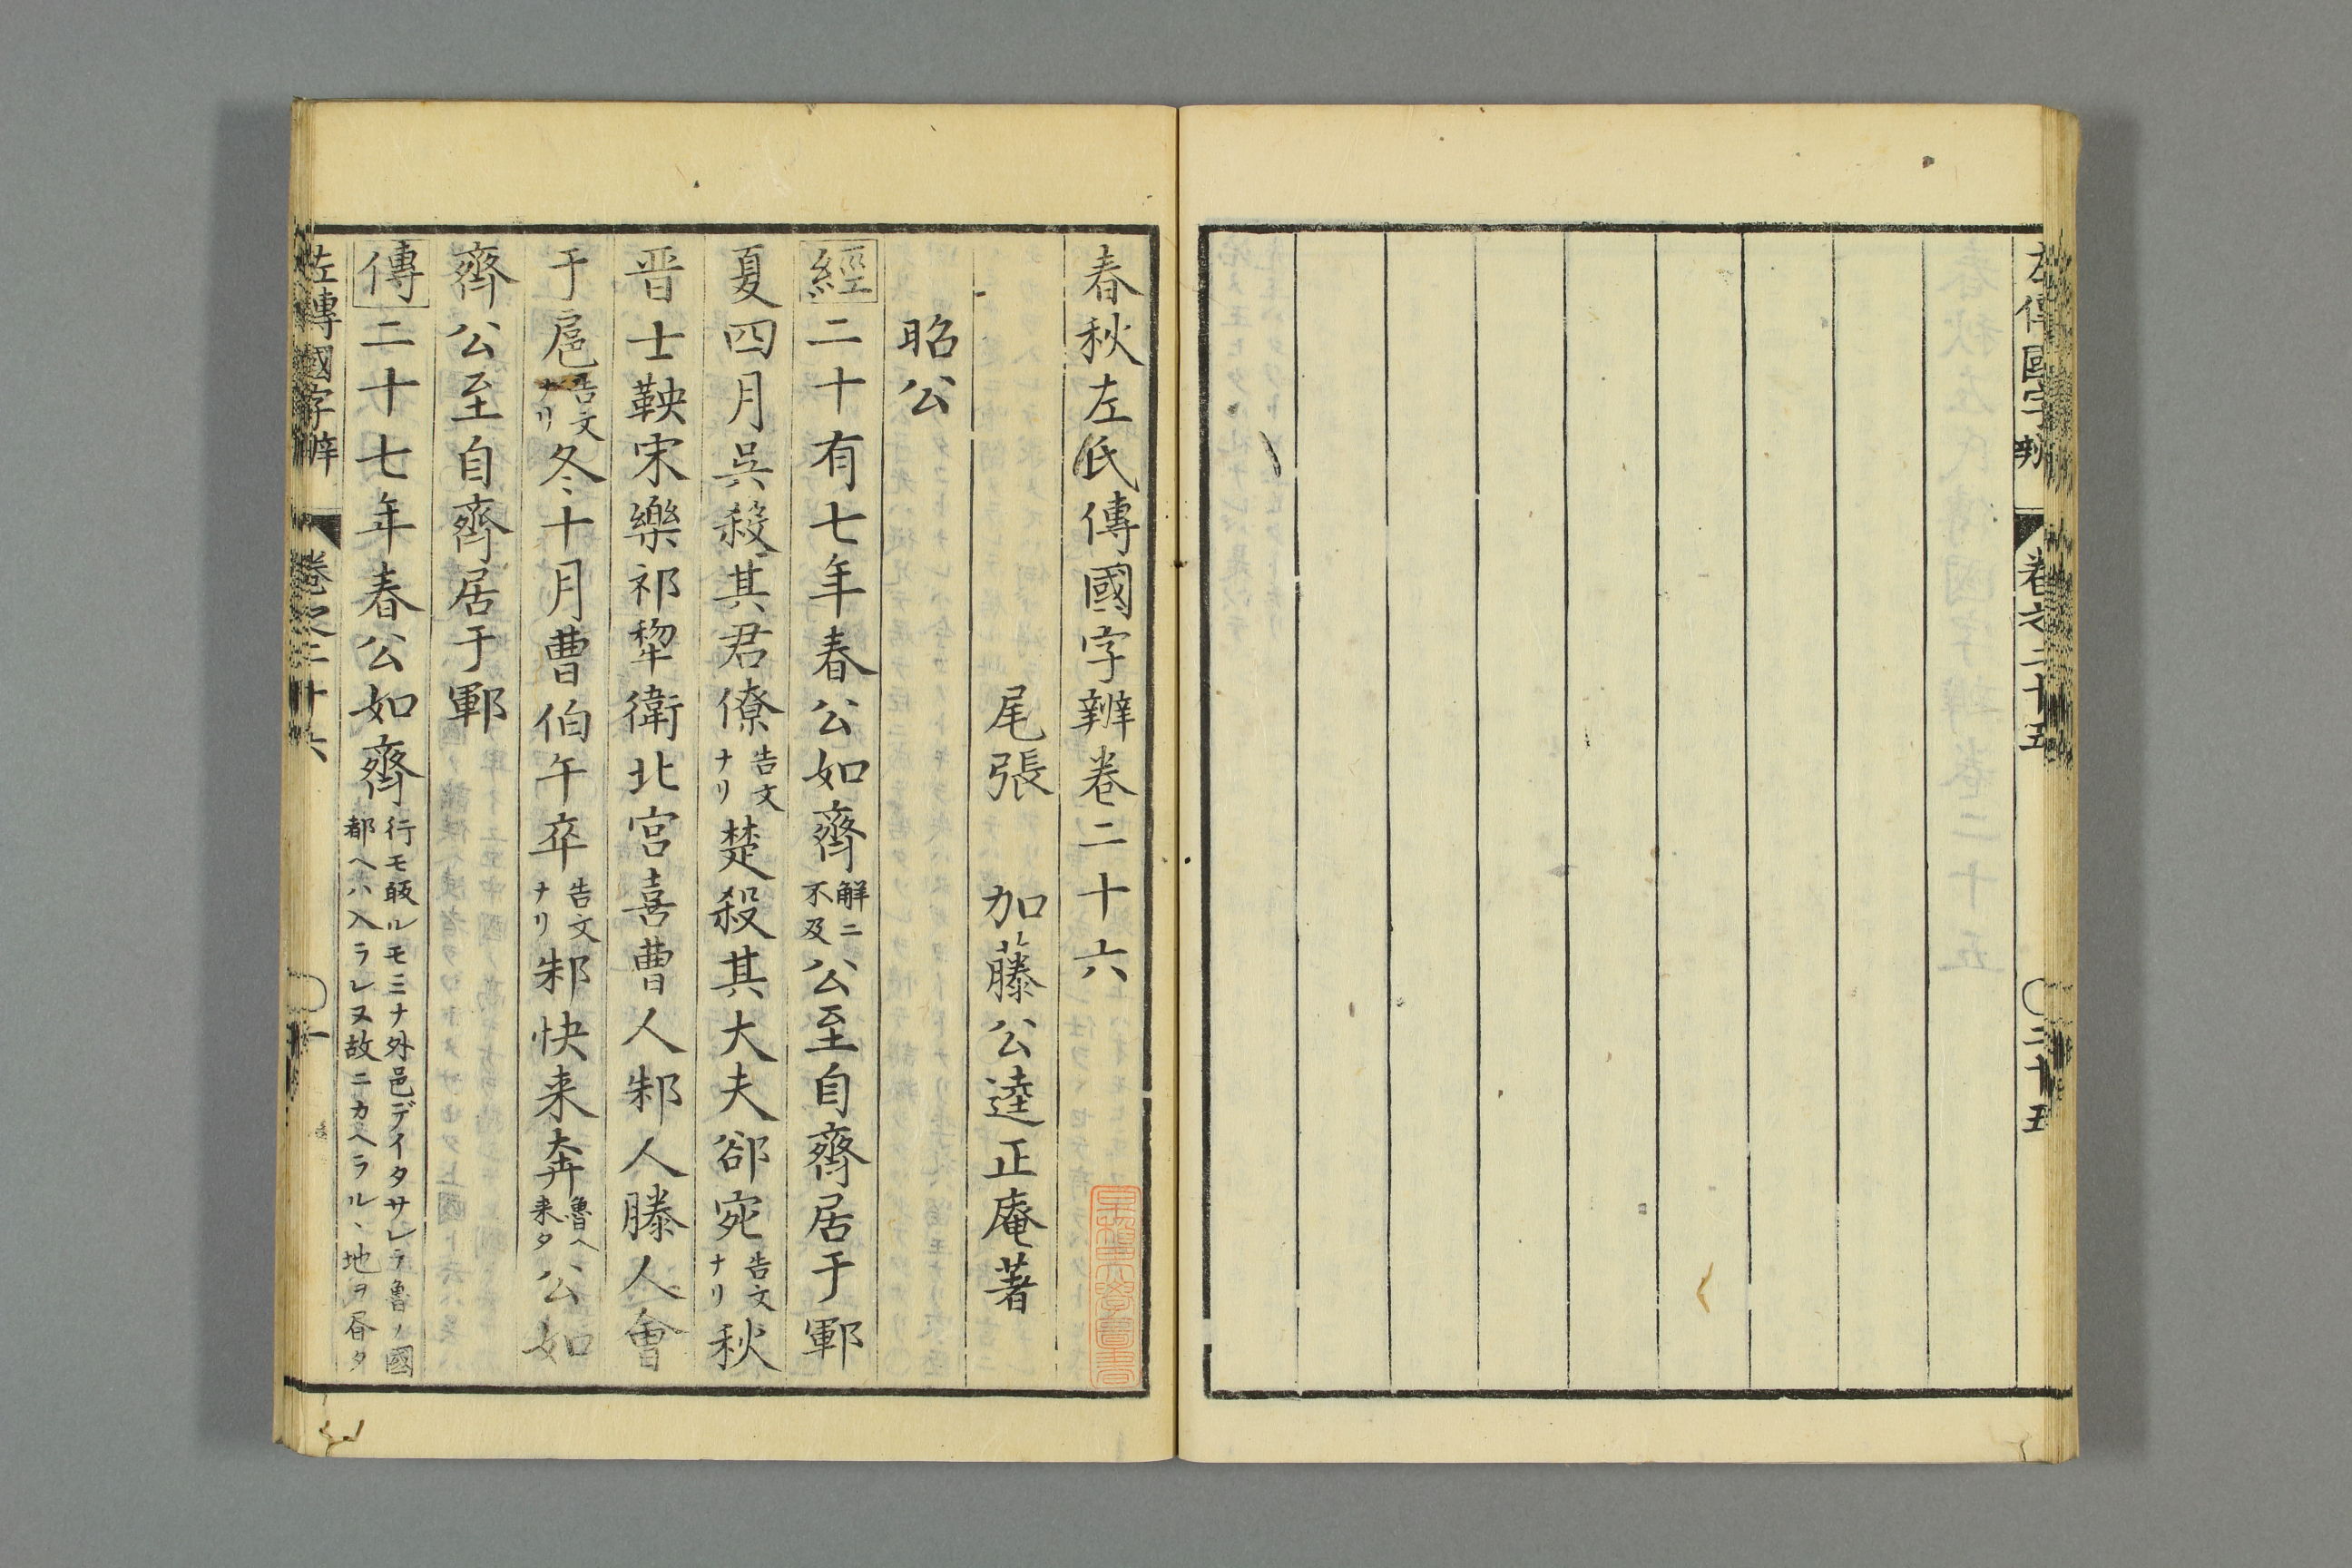 左傳國字辨 卷之二十五 二十五
春秋左氏傳國字辨卷二十六
尾張 加藤公逵正庵著
昭公
經二十有七年春公如齊解ニ不及公至自齊居于鄆
夏四月吳殺其君僚告文ナリ楚殺其大夫郤宛告文ナリ秋
晋士鞅宋樂祁犂衛北宮喜曹人邾人滕人會
于扈告文ナリ冬十月曹伯午卒告文ナリ邾快来奔魯ヘ来タ公如
齊公至自齊居于鄆
傳二十七年春公如齊行モ皈ルモミナ外邑デイタサレテ魯ノ國都ヘハ入ラレヌ故ニカヘラルヽ地ヲ昏タ
左傳國字辨 卷之二十六 一